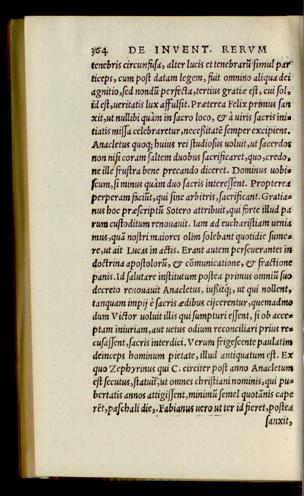 364 DE INVENT. RERVM
tenebris circunfusa, alter lucis et tenebrarũ simul par
ticeps, cum post datam legem, fuit omnino aliqua dei
agnitio, sed nondũ perfecta, tertius gratiæ est, cui sol,
id est, ueritatis lux affulsit. Præterea Felix primus san
xit, ut nullibi quàm in sacro loco, & à uiris sacris ini=
tiatis missa celebraretur, necessitatẽ semper excipiens.
Anacletus quoq; huius rei studiosus uoluit, ut sacerdos
non nisi coram saltem duobus sacrificaret, quo, credo,
ne ille frustra bene precando diceret. Dominus uobi=
scum, si minus quàm duo sacris interessent. Propterea
perperam faciũt, qui sine arbitris, sacrificant. Gratia=
nus hoc præscriptũ Sotero attribuit, qui forte illud pa
rum custoditum renouauit. Iam ad eucharistiam uenia
mus, quã nostri maiores olim solebant quotidie sume=
re, ut ait Lucas in actis. Erant autem perseuerantes in
doctrina apostolorũ, & cõmunicatione, & fractione
panis. Id salutare institutum postea primus omniũ suo
decreto renouauit Anacletus, iußitq;, ut qui nollent,
tanquam impij è sacris ædibus eijcerentur, quemadmo
dum Victor uoluit illis qui sumpturi essent, si ob acce=
ptam iniuriam, aut uetus odium reconciliari prius re=
cusassent, sacris interdici. Verum frigescente paulatim
deinceps hominum pietate, illud antiquatum est. Ex
quo Zephyrinus qui C. circiter post anno Anacletum
est secutus, statuit, ut omnes christiani nominis, qui pu=
bertatis annos attigissent, minimũ semel quotãnis cape
rẽt, paschali die. Fabianus uero ut ter id fieret, postea
sanxit,